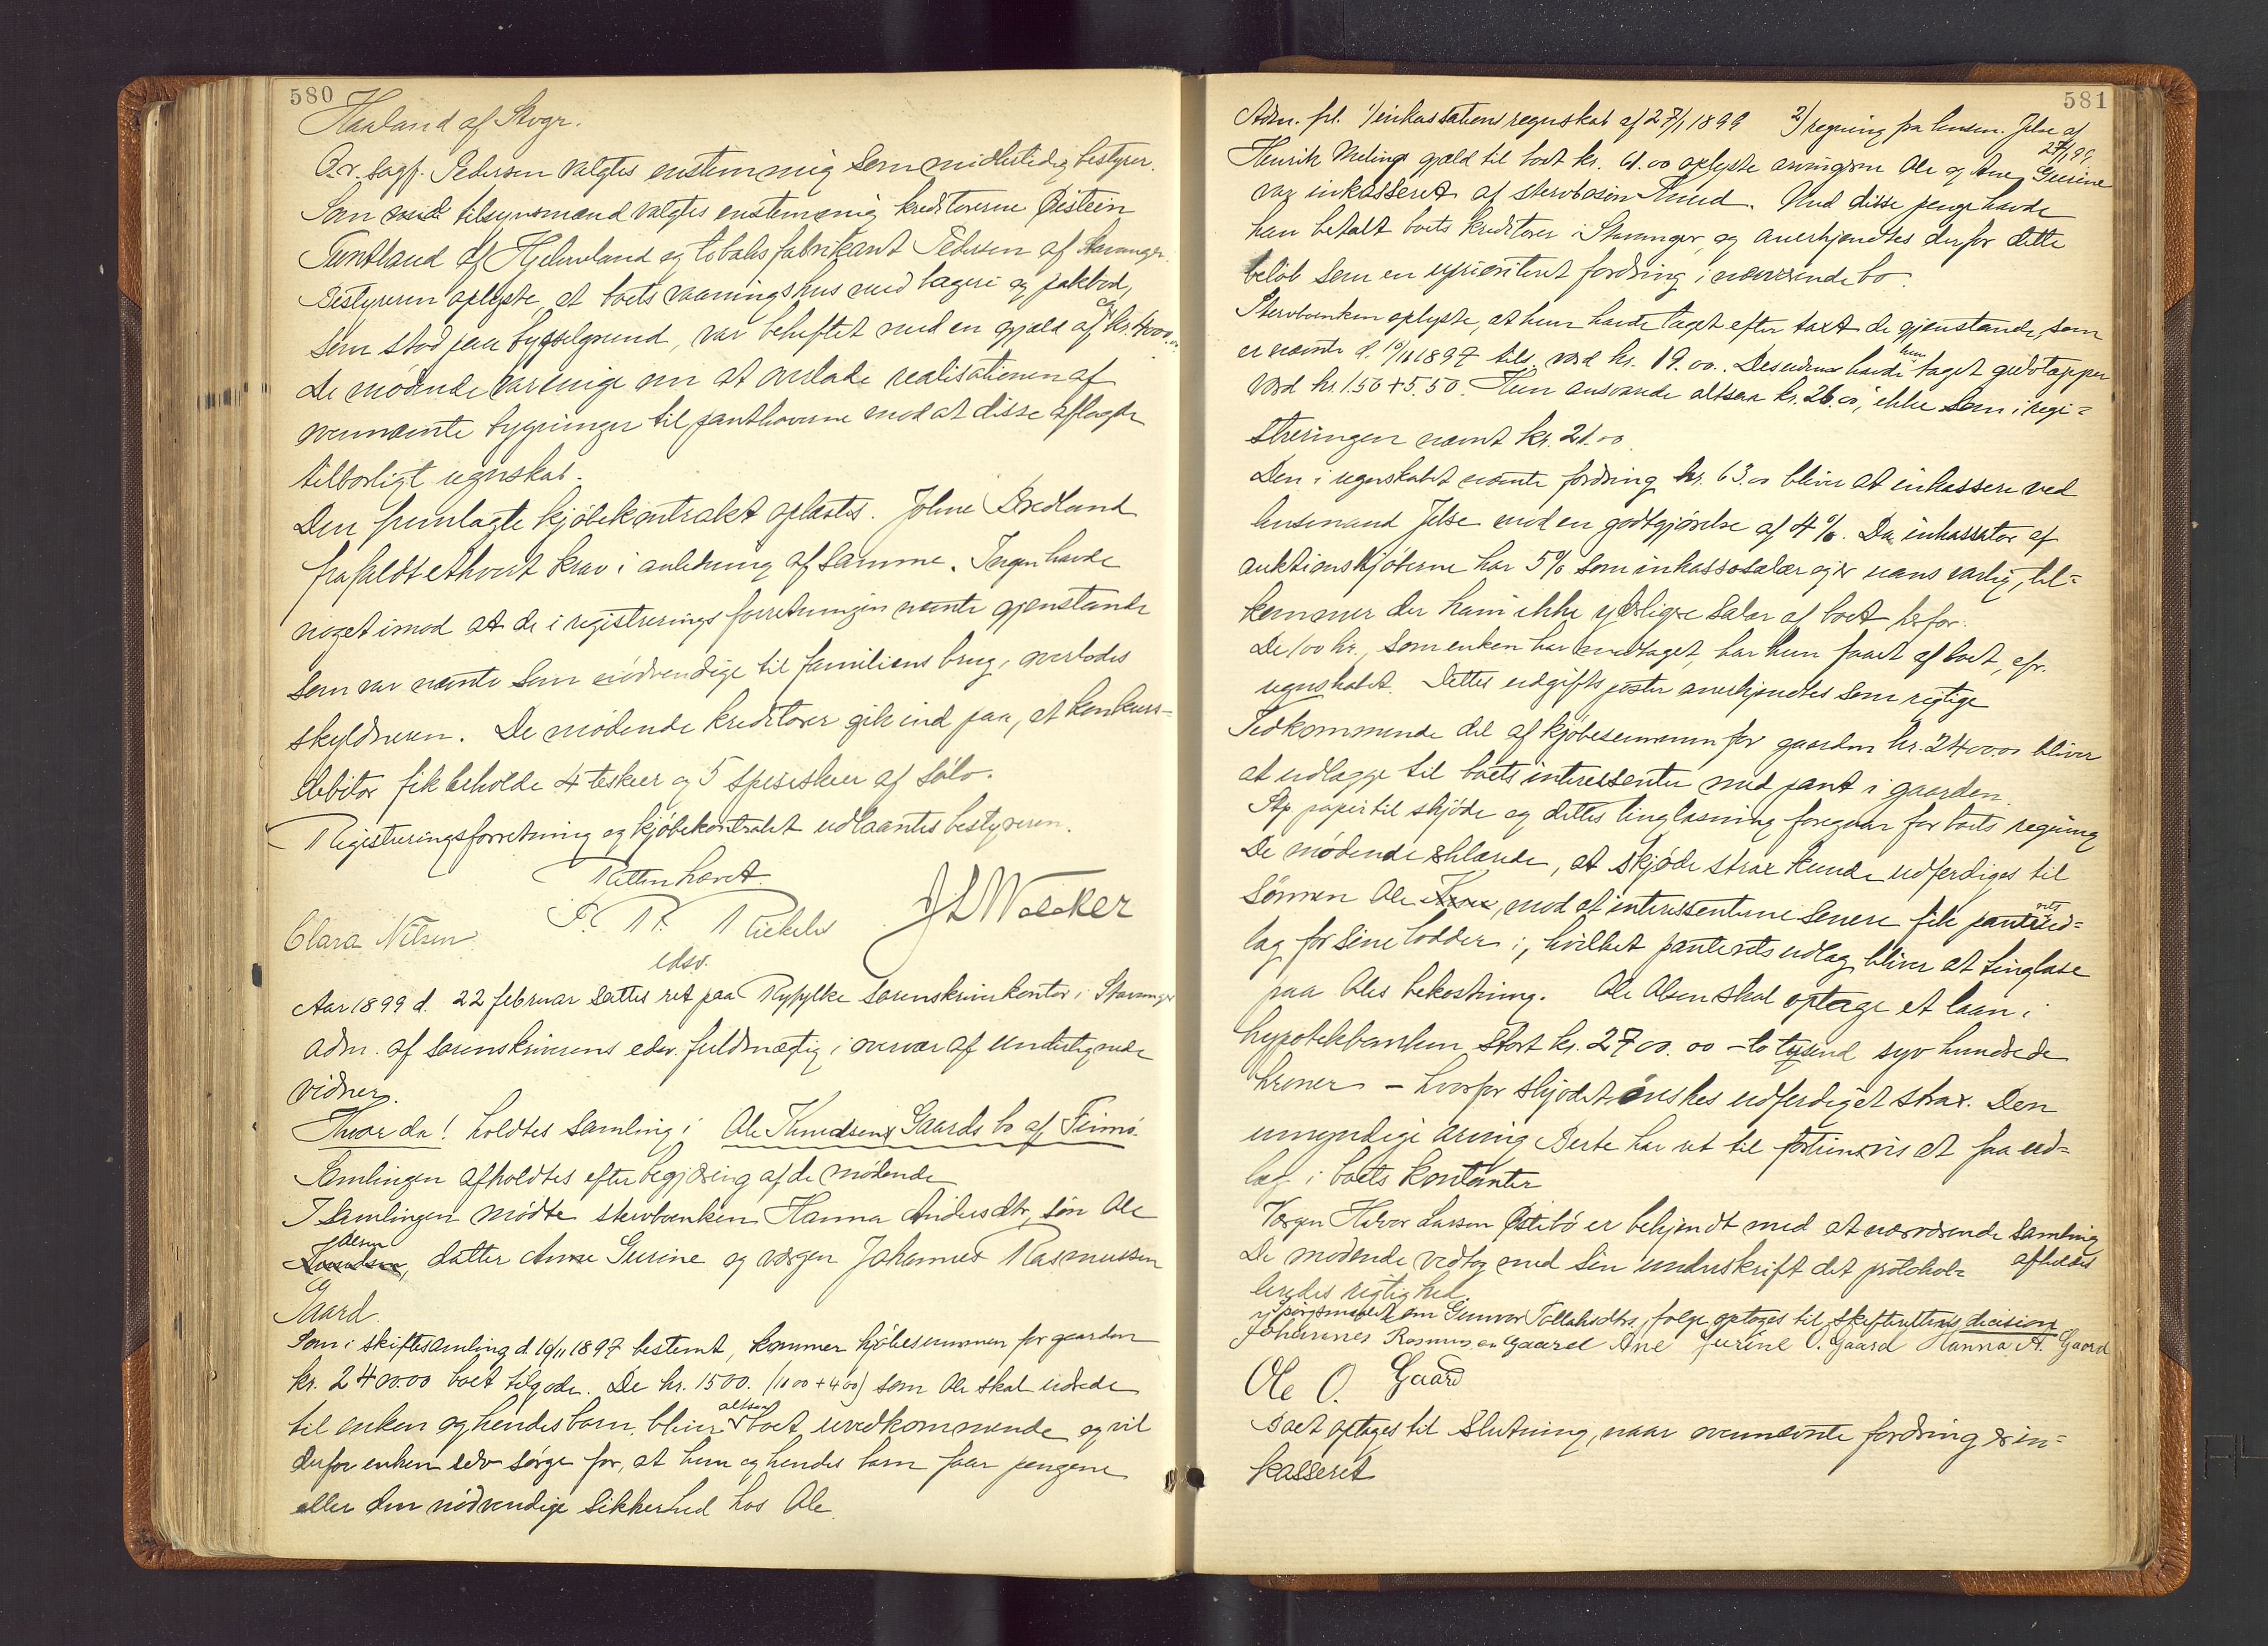 580
Haaland af Skogr.
O.r. sagf. Pedersen valgtes enstemmig som midlertidig bestyrer.
Som tilsynsmænd valgtes enstemmig kreditorerne Øistein
Tuntland af Hjelmeland og tobaksfabrikant Pedersen af Stavanger.
Bestyreren oplyste, at boets vaaningshus med bageri og pakbod,
som stod paa bygselgrund, var beheftet med en gjæld af ca kr. 4000.00
De mødende var enige om at overlade realisationen af
ovennævnte bygninger til panthaverne mod at disse aflagde
tilbørligt regnskab.
Den fremlagte kjøbekontrakt oplæstes. Johne Bredland
frafaldt ethvert krav i anledning af samme. Ingen havde
noget imod at de i registreringsforretningen nævnte gjenstande
som var nævnte som nødvendige til familiens brug, overlodes
skyldneren. De mødende kreditorer gik ind paa, at konkurs-
debitor fik beholde 4 teskeer og 5 spiseskeer af sølv.
Registreringsforretning og kjøbekontrakt udlaantes bestyreren.
Retten hævet
Clara Nilsen
edsv.
Aar 1899 d. 22 februar sattes ret paa Ryfylke sorenskriverkontor i Stavanger
adm. af sorenskriverens edsv. fuldmægtig i overvær af undertegnede
vidner.
Hvor da! holdtes samling i Ole Knudsens Gaards bo af Finnø.
Samlingen afholdtes efter begjæring af de mødende
I samlingen mødte stervboenken Hanna Andersdtr, søn Ole
Olsen
Knudsen, datter Anne Gurine og værgen Johannes Rasmussen
Gaard.
Som i skiftesamling d. 10/11 1897 bestemt, kommer kjøbesummen for gaarden
kr. 2400.00 boet tilgode. De kr. 1500. (1100 + 400) som Ole skal udrede
til enken og hendes barn, bliver altsaa boet uvedkommende og vil
derfor enken selv sørge for, at hun og hendes barn faar pengene
eller den nødvendige sikkerhed hos Ole.
581
Adm. frl. 1/ inkassationsregnskab af 27/1 1899 2/ regning fra lensm. Jelse af
27/1 99.
Henrik Melings gjæld til boet kr. 61.00 oplyste arvingerne Ole og Ane Gurine
var inkasseret af stervbosøn Knud. Med disse penge havde
han betalt boets kreditorer i Stavanger, og anerkjendtes derfor dette
beløb som en uprioriteret fordring i nærværende bo.
Stervboenken oplyste, at hun havde taget efter taxt de gjenstande, som
er nævnte d. 10/11 1897 tils. værd kr. 19.00. Desuden havde hun taget gulvtæpper
værd kr. 1.50 + 5.50. Hun ansvarede altsaa kr. 26.00, ikke som i regi=
streringen nævnt kr. 21.00.
Den i regnskabet nævnte fordring kr. 63.00 bliver at inkassere ved
lensmand Jelse mod en godtgjørelse af 4 %. Da inkassator af
auktionskjøberne har 5 % som inkassosalær og er ansvarlig, til=
kommer der ham ikke yderligere salær af boet herfor.
De 100 kr., som enken har modtaget, har hun faaet af boet, cfr.
regnskabet. Dettes udgiftsposter anerkjendtes som rigtige
Vedkommende del af kjøbesummen for gaarden kr. 2400.00 bliver
at udlægge til boets interessenter med pant i gaarden.
Stp. papir til skjøde og dettes tinglæsning foregaar for boets regning
De mødende erklærede, at skjøde strax kunde udferdiges til
sønnen Ole, mod at interessenterne senere fik panterets ud=
læg for sine lodder i, hvilket panteretsudlæg bliver at tinglæse
paa Oles bekostning. Ole Olsen skal optage et laan i
hypotekbanken stort kr. 2700.00 - to tusend syv hundrede
kroner - hvorfor skjødet ønskes udferdiget strax. Den
umyndige arving Berte har ret til fortrinsvis at faa ud=
læg i boets kontanter
Værgen Halvor Larsen Østebø er bekjendt med at nærværende samling
afholdes
De mødende vedtog med sin underskrift det protokol=
leredes rigtighed.
Spørgsmaalet om Gunvor Tollaksdtrs. følge optages til skifterettens decision
Johannes Rasmusen Gaard Ane Jurine O. Gaard Hanna A. Gaard
Ole O. Gaard
Boet optages til slutning, naar ovennævnte fordring er in=
kasseret